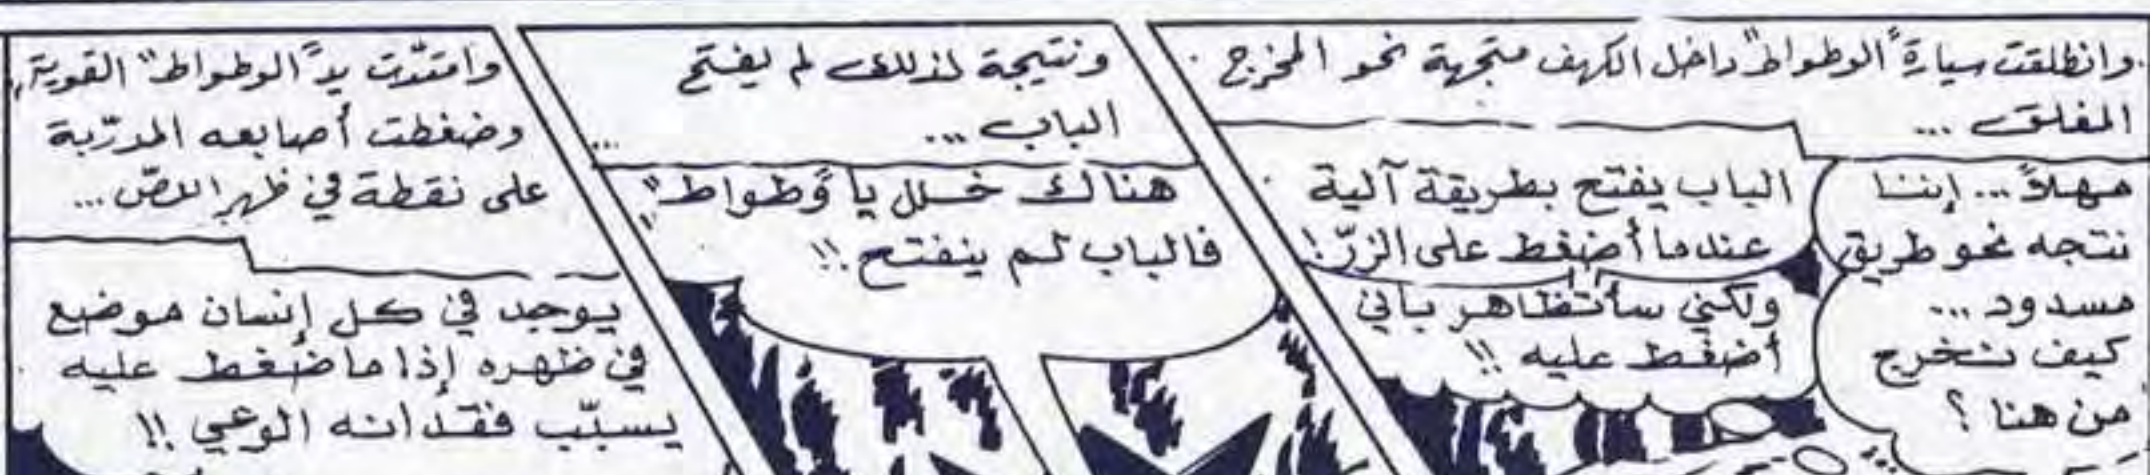 وانطلقت سيارة "الوطواط" داخل الكهف متجهة نحو المخرج
المغلق ...
مهلاً ... إننا
نتجه نحو طريق
مسدود ...
كيف نخرج
من هنا ؟
الباب يفتح بطريقة آلية
عندما أضغط على الزرّ !
ولكني سأتظاهر بأني
أضغط عليه !!
ونتيجة لذلك لم يفتح
الباب ...
هناك خلل يا "وطواط"
فالباب لم ينفتح !!
وامتدّت يد "الوطواط" القوية،
وضغطت أصابعه المدرّبة
على نقطة في ظهر اللصّ ...
يوجد في كل إنسان موضع
في ظهره إذا ما ضغط عليه
يسبّب فقدانه الوعي !!